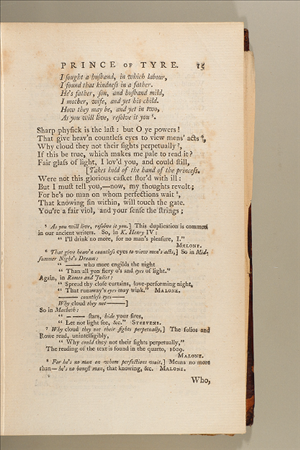 PRINCE OF TYRE. 15
I sought a husband, in which labour,
I found that kindness in a father.
He's father, son, and husband mild,
I mother, wife, and yet his child.
How they may be, and yet in two,
As you will live, resolve it you ⁵.
Sharp physick is the last: but O ye powers!
That give heav'n countless eyes to view mens' acts ⁶,
Why cloud they not their sights perpetually ⁷,
If this be true, which makes me pale to read it?
Fair glass of light, I lov'd you, and could still,
[Takes hold of the hand of the princess.
Were not this glorious casket stor'd with ill:
But I must tell you,—now, my thoughts revolt;
For he's no man on whom perfections wait ⁸,
That knowing sin within, will touch the gate.
You're a fair viol, and your sense the strings;
⁵ As you will live, resolve it you.] This duplication is common
in our ancient writers. So, in K. Henry IV:
" I'll drink no more, for no man's pleasure, I."
MALONE.
⁶ That give heav'n countless eyes to view men's acts,] So in Mid-
summer Night's Dream:
" —— who more engilds the night
" Than all yon fiery o's and eyes of light."
Again, in Romeo and Juliet:
" Spread thy close curtains, love-performing night,
" That runaway's eyes may wink." MALONE.
—— countless eyes——
Why cloud they not——]
So in Macbeth:
" —— stars, hide your fires,
" Let not light see, &c." STEEVENS.
⁷ Why cloud they not their sights perpetually,] The folios and
Rowe read, unintelligibly,
" Why could they not their sights perpetually,"
The reading of the text is found in the quarto, 1609.
MALONE.
⁸ For he's no man on whom perfections wait,] Means no more
than—he's no honest man, that knowing, &c. MALONE.
Who,